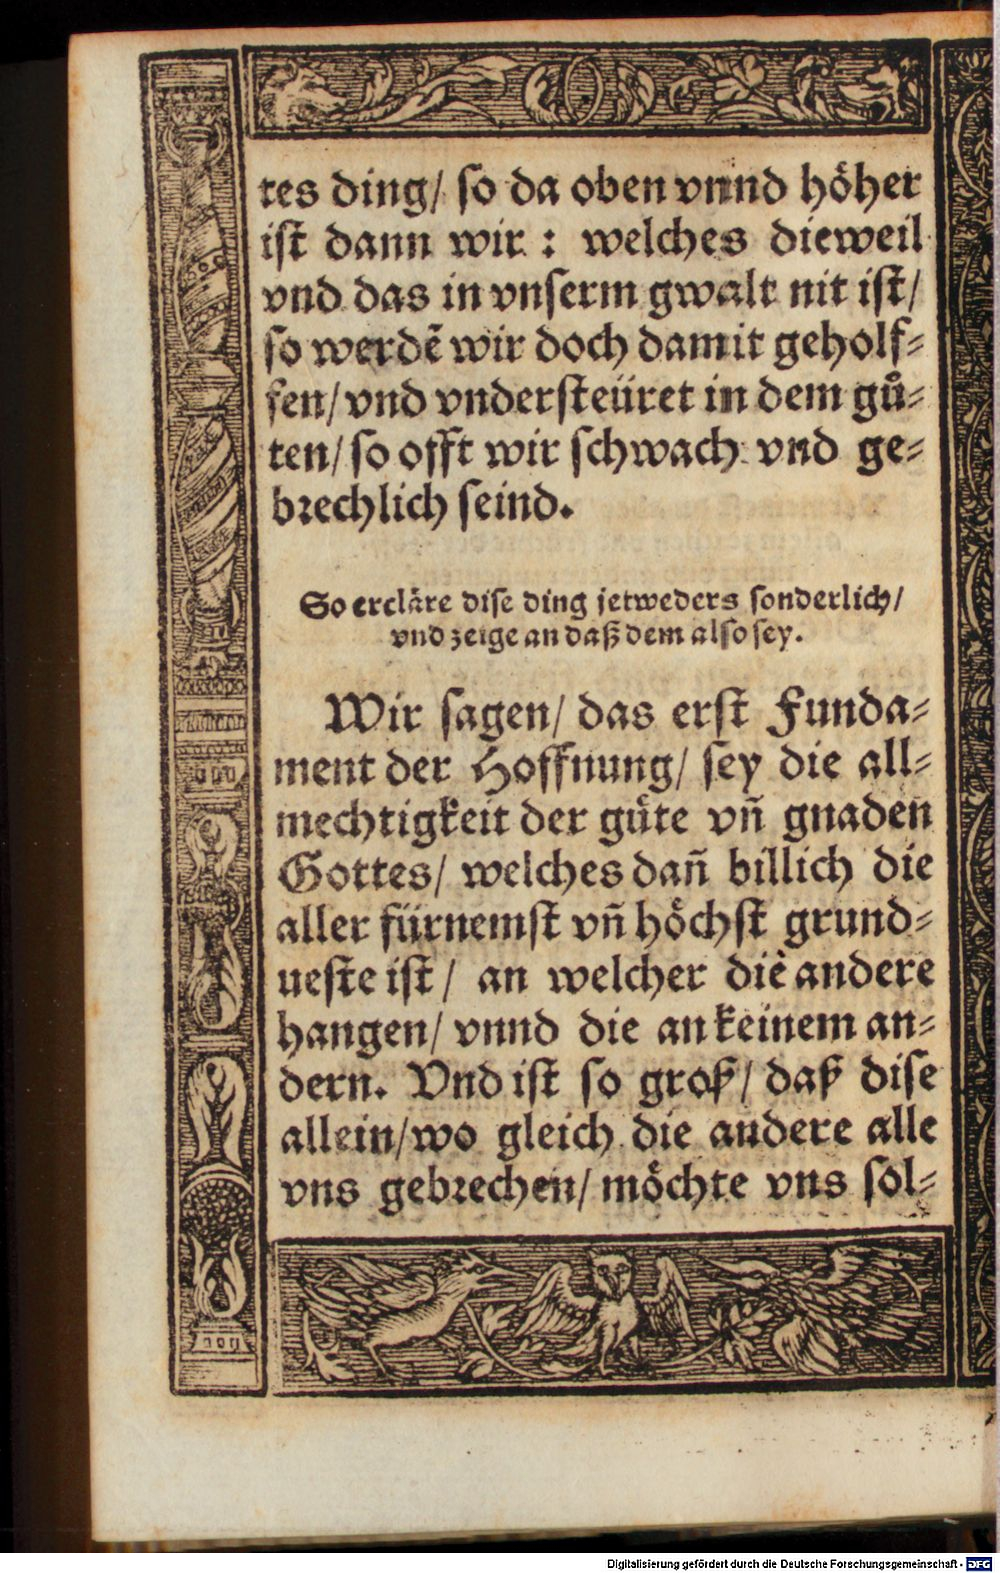 tes ding/ so da oben vnnd höher
ist dann wir : welches dieweil
vnd das in vnserm gwalt nit ist/
so werdẽ wir doch damit geholf⸗
fen/ vnd vndersteüret in dem gů⸗
ten/ so offt wir schwach vnd ge⸗
brechlich seind.
Soercläre dise ding jetweders sonderlich/
vnd zeige an daß dem also sey.
Wir sagen/ das erst Funda⸗
ment der Hoffnung/ sey die all⸗
mechtigkeit der güte vñ gnaden
Gottes/ welches dañ billich die
aller fürnemst vñ höchst grund⸗
ueste ist/ an welcher die andere
hangen/ vnnd die an keinem an⸗
dern. Vnd ist so groß/ daß dise
allein/ wo gleich die andere alle
vns gebrechen/ möchte vns sol⸗
Digitalisierung gefördert durch die Deutsche Forschungsgemeinschaft - DFG